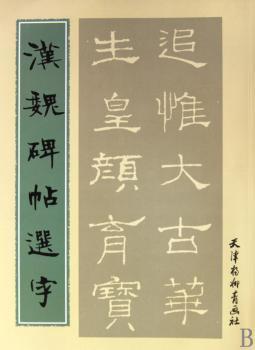 漢魏碑帖選字
追惟大古華
生皇顔育寶
天津杨柳青画社
B